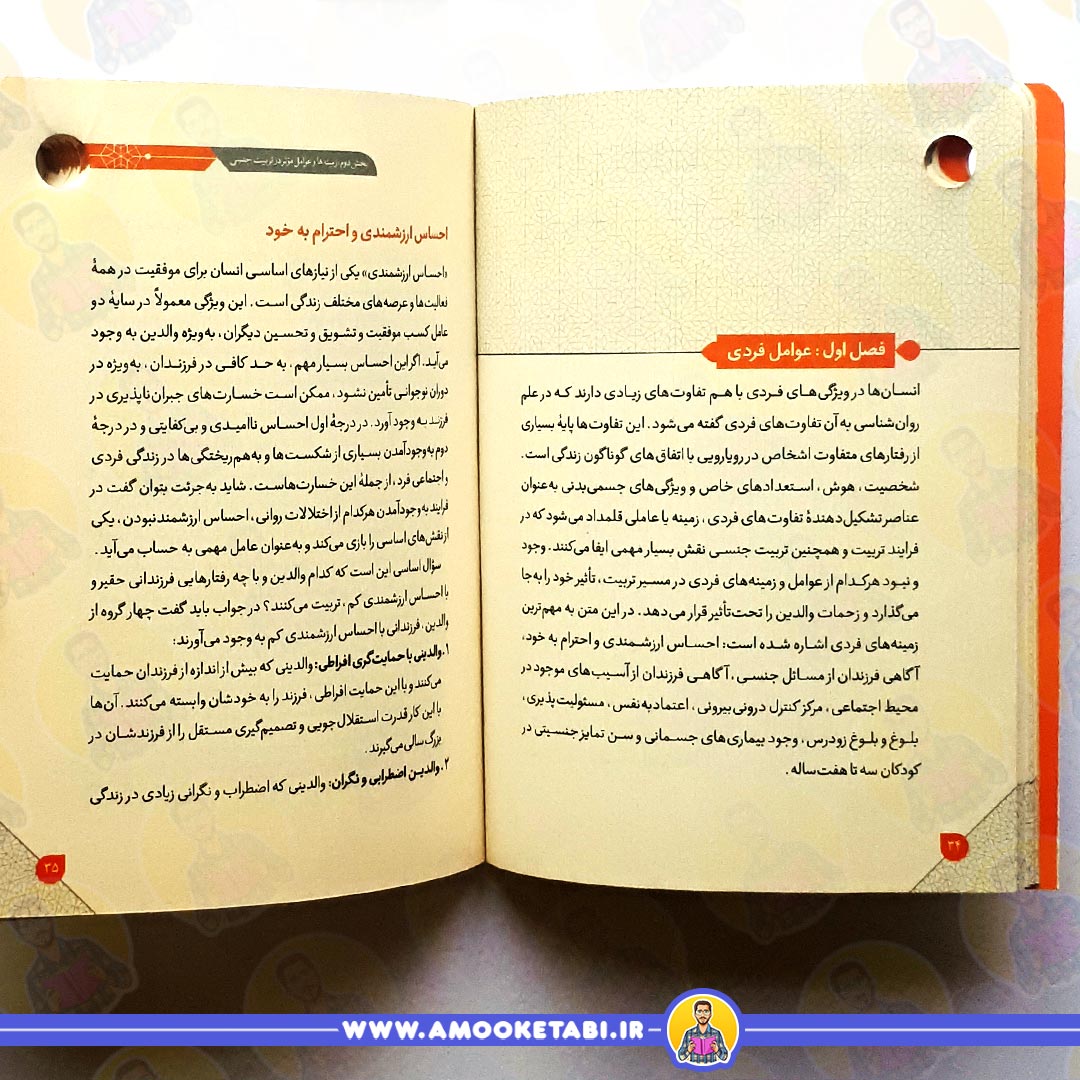 فصل اول : عوامل فردی
انسان‌ها در ویژگی‌های فردی با هم تفاوت‌های زیادی دارند که در علم
روان‌شناسی به آن تفاوت‌های فردی گفته می‌شود. این تفاوت‌ها پایهٔ بسیاری
از رفتارهای متفاوت اشخاص در رویارویی با اتفاق‌های گوناگون زندگی است.
شخصیت، هوش، استعدادهای خاص و ویژگی‌های جسمی‌بدنی به‌عنوان
عناصر تشکیل‌دهندهٔ تفاوت‌های فردی، زمینه یا عاملی قلمداد می‌شود که در
فرایند تربیت و همچنین تربیت جنسی نقش بسیار مهمی ایفا می‌کنند. وجود
و نبود هرکدام از عوامل و زمینه‌های فردی در مسیر تربیت، تأثیر خود را به‌جا
می‌گذارد و زحمات والدین را تحت‌تأثیر قرار می‌دهد. در این متن به مهم‌ترین
زمینه‌های فردی اشاره شده است: احساس ارزشمندی و احترام به خود،
آگاهی فرزندان از مسائل جنسی، آگاهی فرزندان از آسیب‌های موجود در
محیط اجتماعی، مرکز کنترل درونی بیرونی، اعتمادبه‌نفس، مسئولیت‌پذیری،
بلوغ و بلوغ زودرس، وجود بیماری‌های جسمانی و سن تمایز جنسیتی در
کودکان سه تا هفت‌ساله.
۳۴
بخش دوم: زمینه‌ها و عوامل مؤثر در تربیت جنسی
احساس ارزشمندی و احترام به خود
«احساس ارزشمندی» یکی از نیازهای اساسی انسان برای موفقیت در همهٔ
فعالیت‌ها و عرصه‌های مختلف زندگی است. این ویژگی معمولاً در سایهٔ دو
عامل کسب موفقیت و تشویق و تحسین دیگران، به‌ویژه والدین به وجود
می‌آید. اگر این احساس بسیار مهم، به حد کافی در فرزندان، به‌ویژه در
دوران نوجوانی تأمین نشود، ممکن است خسارت‌های جبران‌ناپذیری در
فرزند به وجود آورد. در درجهٔ اول احساس ناامیدی و بی‌کفایتی و در درجهٔ
دوم به‌وجودآمدن بسیاری از شکست‌ها و به‌هم‌ریختگی‌ها در زندگی فردی
و اجتماعی فرد، از جملهٔ این خسارت‌هاست. شاید به‌جرئت بتوان گفت در
فرایند به‌وجودآمدن هرکدام از اختلالات روانی، احساس ارزشمند نبودن، یکی
از نقش‌های اساسی را بازی می‌کند و به‌عنوان عامل مهمی به حساب می‌آید.
سؤال اساسی این است که کدام والدین و با چه رفتارهایی فرزندانی حقیر و
با احساس ارزشمندی کم، تربیت می‌کنند؟ در جواب باید گفت چهار گروه از
والدین، فرزندانی با احساس ارزشمندی کم به وجود می‌آورند:
۱. والدینی با حمایت‌گری افراطی: والدینی که بیش از اندازه از فرزندان حمایت
می‌کنند و با این حمایت افراطی، فرزند را به خودشان وابسته می‌کنند. آن‌ها
با این کار قدرت استقلال‌جویی و تصمیم‌گیری مستقل را از فرزندشان در
بزرگ‌سالی می‌گیرند.
۲. والدین اضطرابی و نگران: والدینی که اضطراب و نگرانی زیادی در زندگی
۳۵
WWW.AMOOKETABI.IR